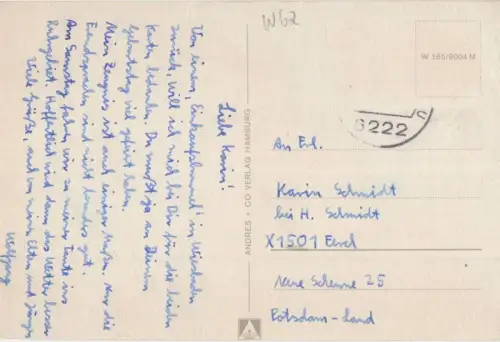 W62
Liebe Karin!
Von einem „Einkaufsbummel" in Wiesbaden
zurück, will ich mich bei Dir für die lieben
Karten bedanken. Du mußt ja an Deinem
Geburtstag viel gefeiert haben.
Mein Zeugnis ist auch einigermaßen. Nur die
Fremdsprachen sind nicht besonders gut.
Am Samstag fahren wir zu meiner Tante ins
Ruhrgebiet. Hoffentlich wird dann das Wetter besser
Viele Grüße, auch von meinen Eltern und
Wolfgang
ANDRES + CO VERLAG HAMBURG
W 585/8004 M
6222
An Frl.
Karin Schmidt
bei H. Schmidt
X1501
Neue Scheune 25
Potsdam-Land